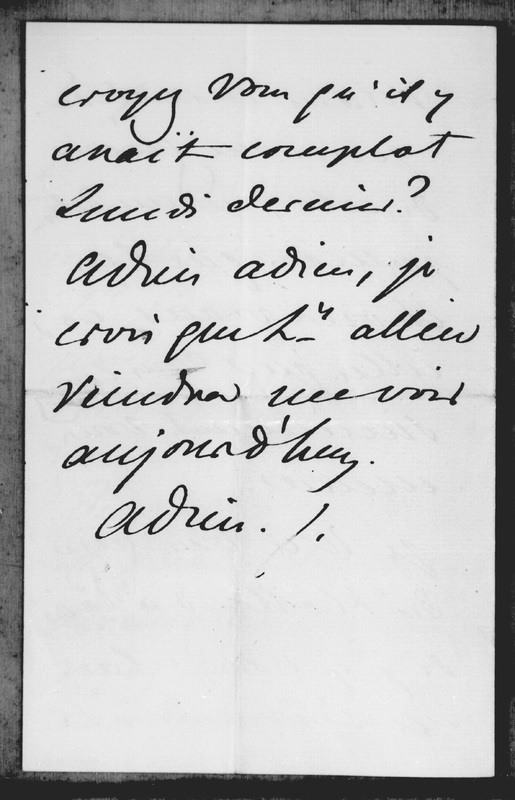 croyez vous qu'il y
avait complot
Lundi dernier?
adieu adieu, je
crois que Lⁿ allieu
viendra me voir
aujourd'huy.
adieu. /.